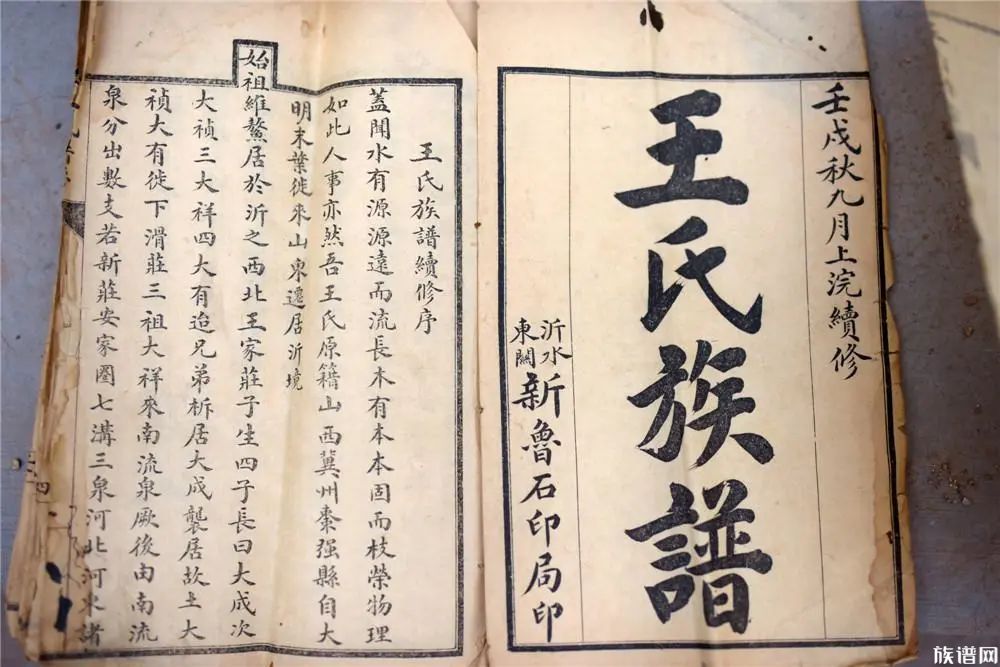 壬戌秋九月上浣續修
王氏族譜
沂水東關新魯石印局印
王氏族譜續修序
蓋聞水有源源遠而流長木有本本固而枝榮物理
如此人事亦然吾王氏原籍山西冀州棗强縣自大
明末葉徙來山東遷居沂境
始祖維鰲居於沂之西北王家莊子生四子長曰大成次
大禎三大祥四大有迨兄弟析居大成襲居故土大
禎大有徙下滑莊三祖大祥來南流泉厥後由南流
泉分出數支若新莊安家圈七溝三泉河北河水諸
族谱网